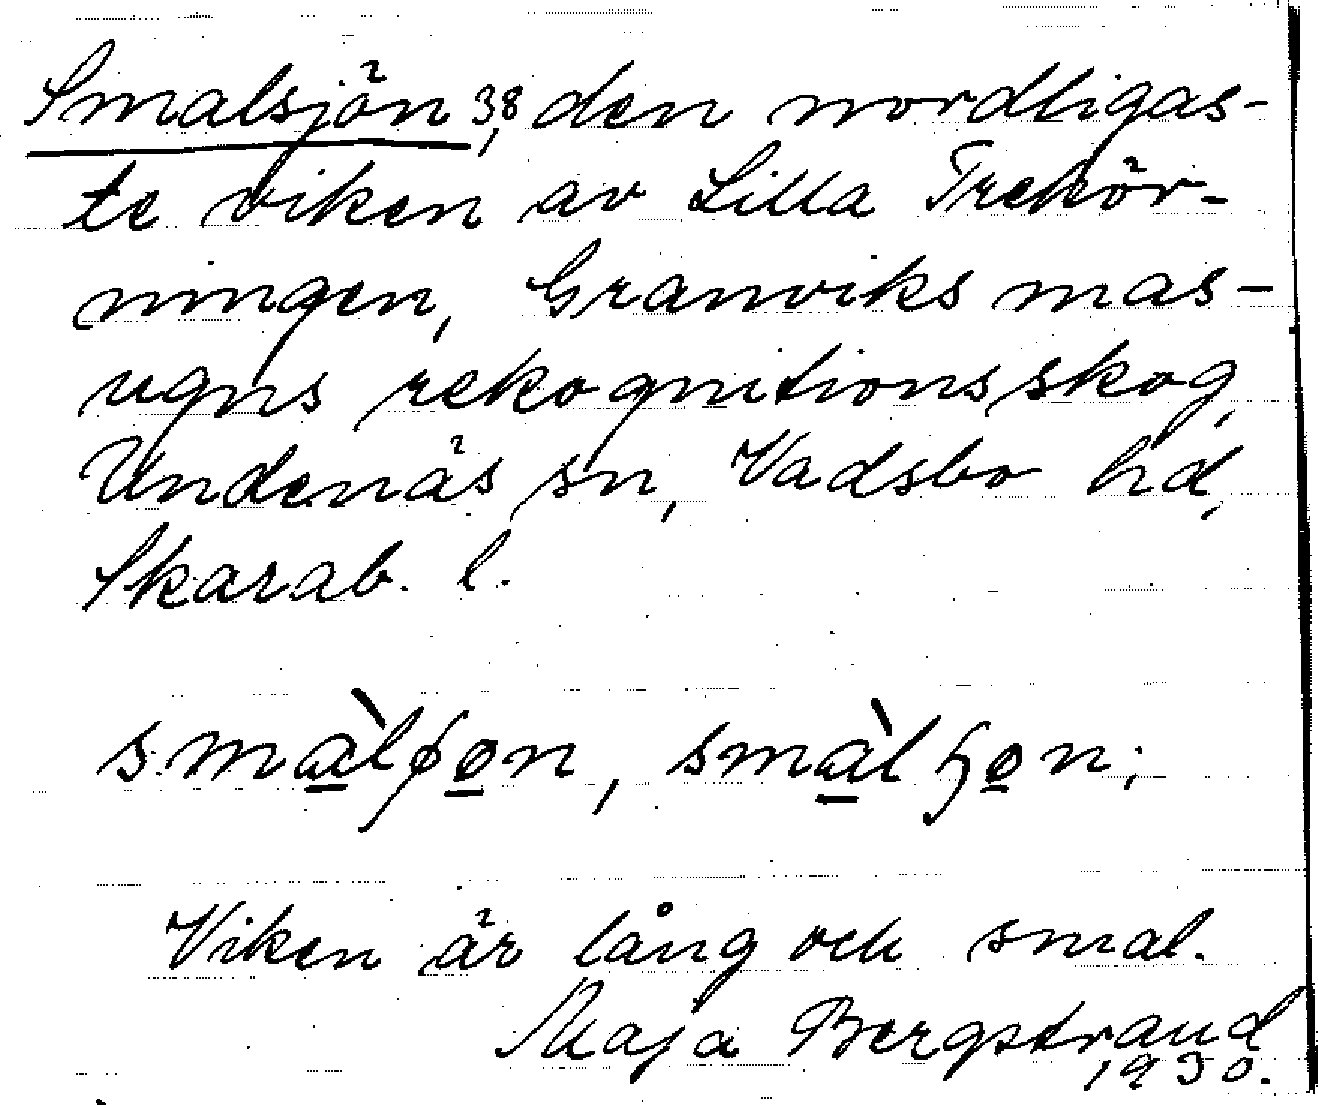 Smalsjön, 38, den nordligas-
te viken av Lilla Trehör-
ningen, Granviks mas-
ugns rekognitionsskog,
Undenäs sn, Vadsbo hd,
Skarab. l.
Viken är lång och smal.
Maja Bergstrand
1930.